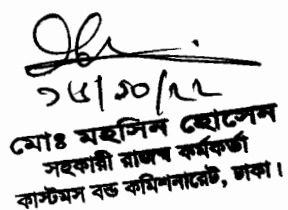 ২৫/১০/২২
মোঃ মহসিন হোসেন
সহকারী রাজস্ব কর্মকর্তা
কাস্টমস বন্ড কমিশনারেট, ঢাকা।